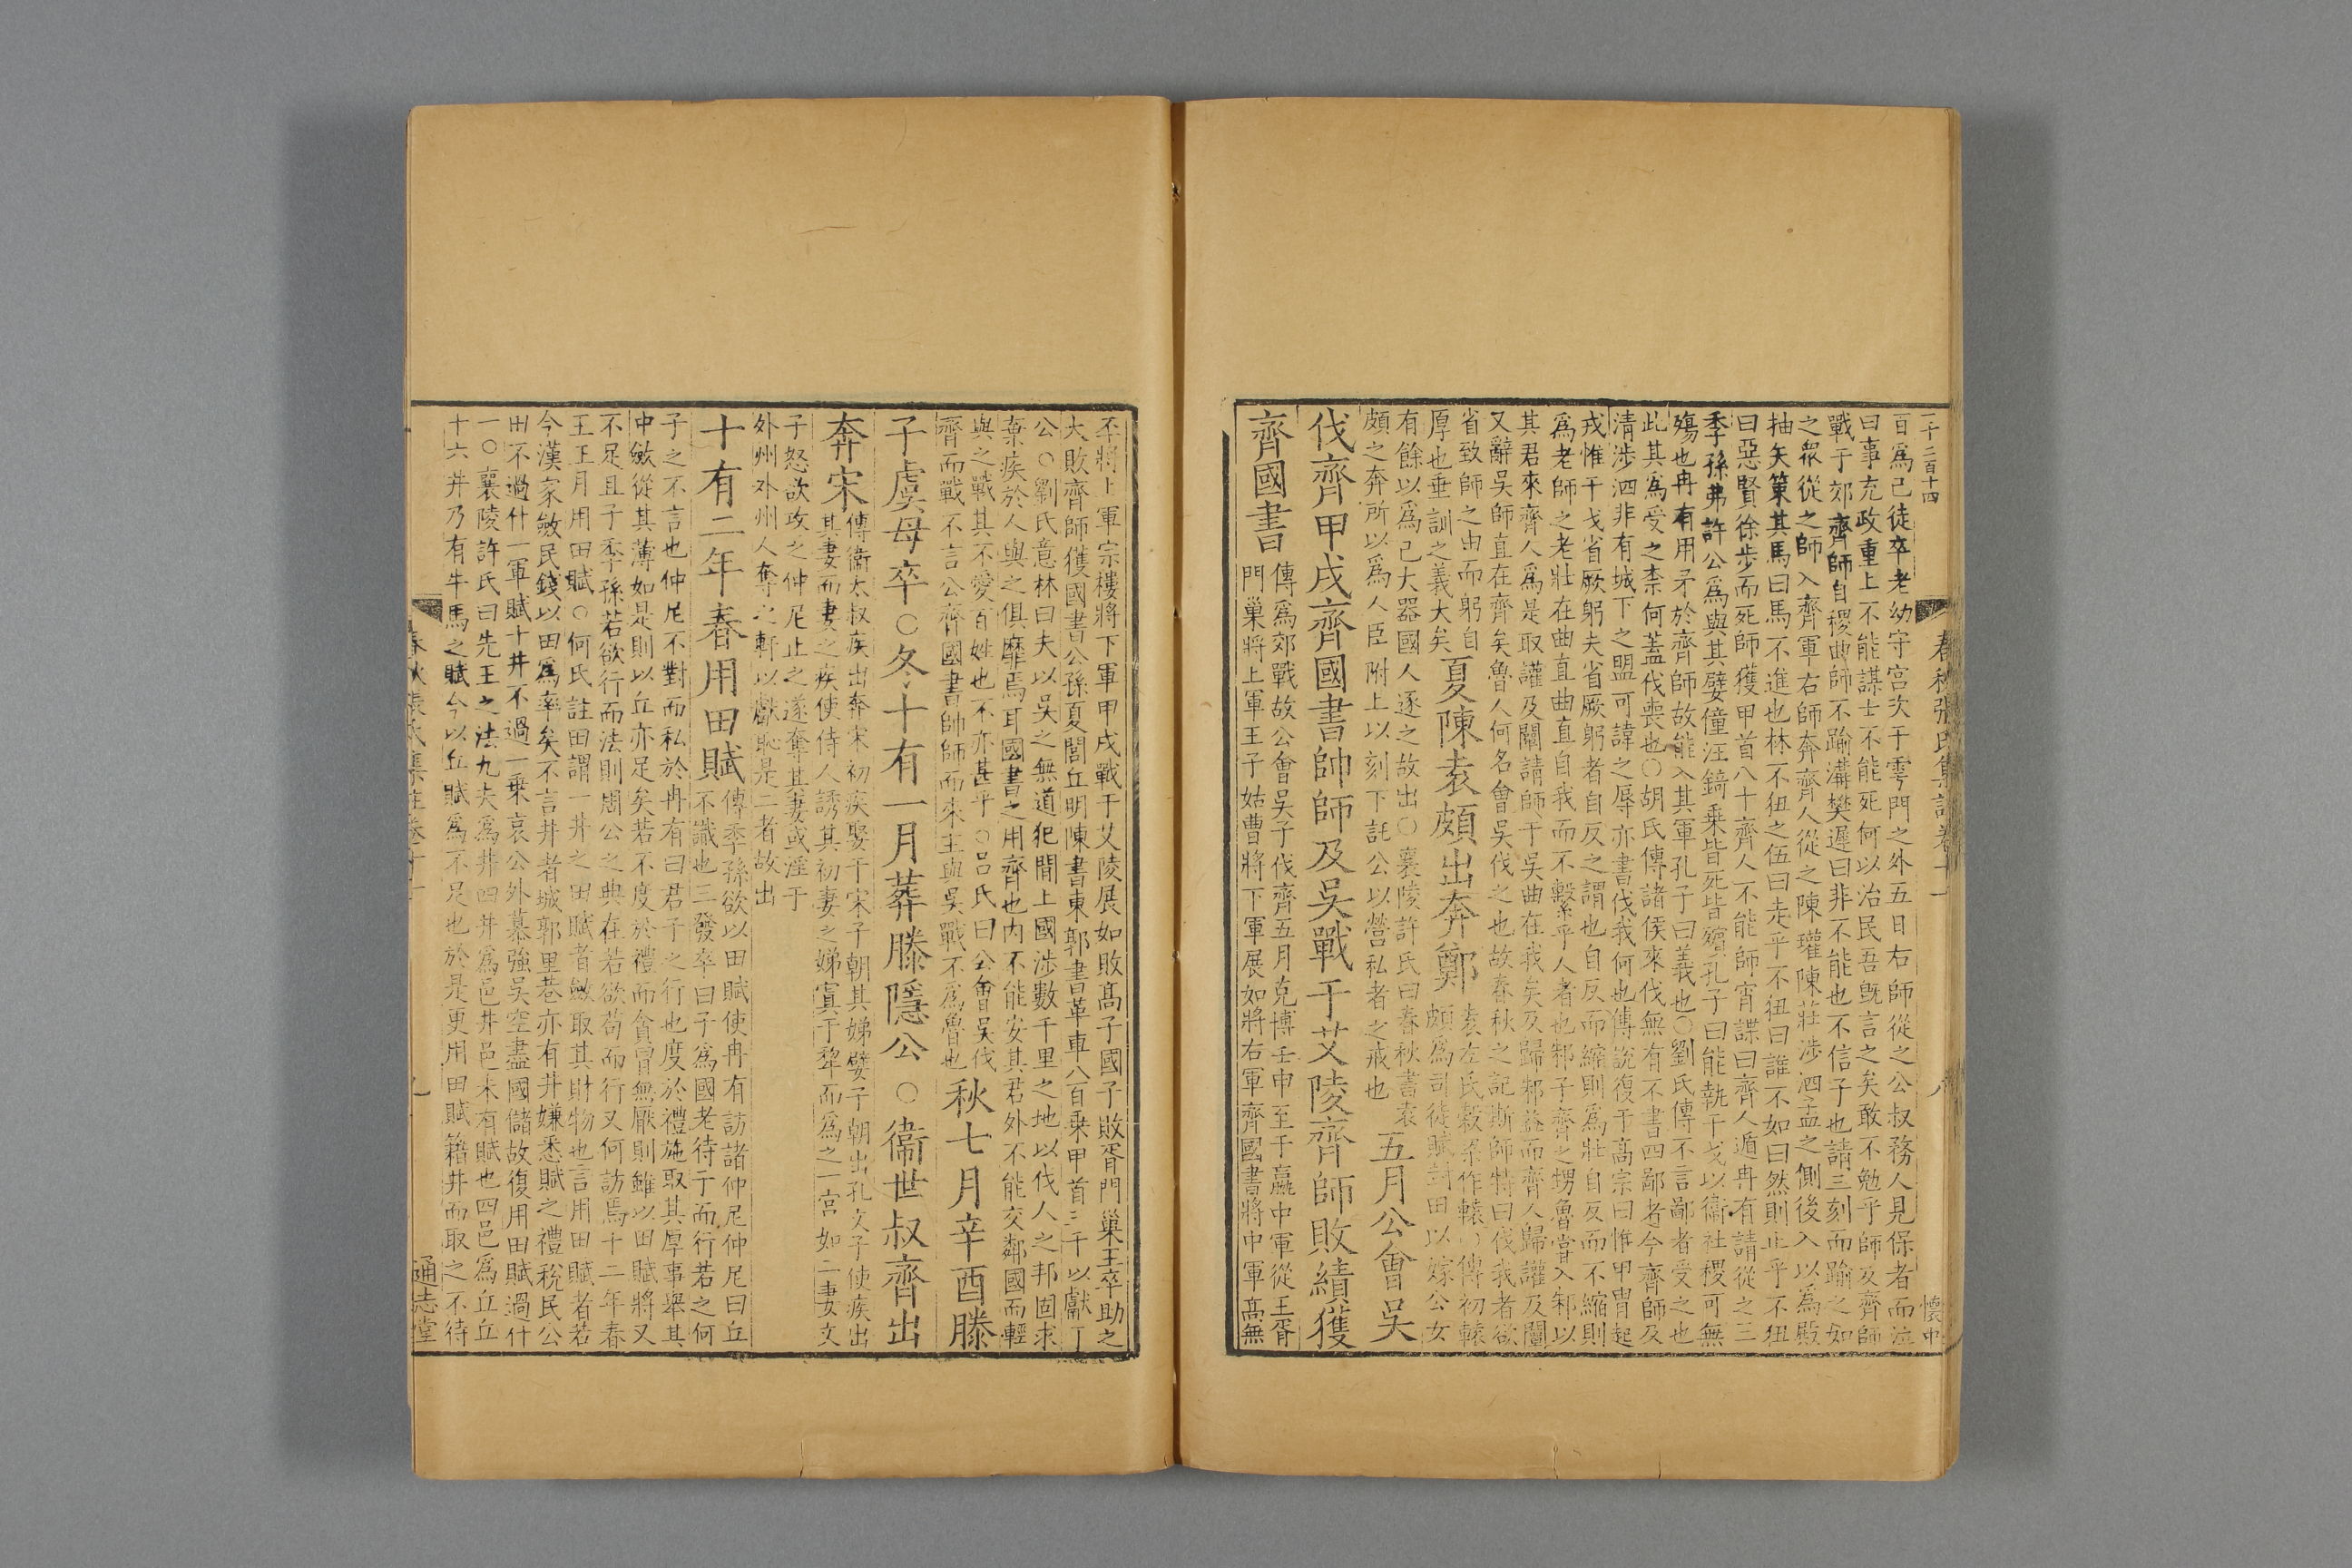 一千二百十四
春秋張氏集註卷十一
八
懷中
百爲己徒卒老幼守宮次于雩門之外五日右師從之公叔務人見保者而泣
曰事充政重上不能謀士不能死何以治民吾旣言之矣敢不勉乎師及齊師
戰于郊齊師自稷曲師不踰溝樊遲曰非不能也不信子也請三刻而踰之如
之衆從之師入齊軍右師奔齊人從之陳瓘陳莊涉泗孟之側後入以爲殿
抽矢策其馬曰馬不進也林不狃之伍曰走乎不狃曰誰不如曰然則止乎不狃
曰惡賢徐步而死師獲甲首八十齊人不能師宵諜曰齊人遁冉有請從之三
季孫弗許公爲與其嬖僮汪錡乗皆死皆殯孔子曰能執干戈以衞社稷可無
殤也冉有用矛於齊師故能入其軍孔子曰義也○劉氏傳不言鄙者受之也
此其爲受之柰何蓋伐喪也○胡氏傳諸侯來伐無有不書四鄙者今齊師及
清涉泗非有城下之盟可諱之辱亦書伐我何也傅說復于高宗曰惟甲冑起
戎惟干戈省厥躬夫省厥躬者自反之謂也自反而縮則爲壯自反而不縮則
爲老師之老壯在曲直曲直自我而不繫乎人者也邾子齊之甥魯嘗入邾以
其君來齊人爲是取讙及闡請師于吳曲在我矣及歸邾益而齊人歸讙及闡
又辭吳師直在齊矣魯人何名會吳伐之也故春秋之記斯師特曰伐我者欲
省致師之由而躬自
厚也垂訓之義大矣
夏陳袁頗出奔鄭
袁左氏穀梁作轅○傳初轅
頗爲司徒賦封田以嫁公女
有餘以爲己大器國人逐之故出○襄陵許氏曰春秋書袁
頗之奔所以爲人臣附上以刻下託公以營私者之戒也
五月公會吳
伐齊甲戌齊國書帥師及吳戰于艾陵齊師敗績獲
齊國書
傳爲郊戰故公會吳子伐齊五月克博壬申至于嬴中軍從王胥
門巢將上軍王子姑曹將下軍展如將右軍齊國書將中軍高無
丕將上軍宗樓將下軍甲戌戰于艾陵展如敗高子國子敗胥門巢王卒助之
大敗齊師獲國書公孫夏閭丘明陳書東郭書革車八百乗甲首三千以獻于
公○劉氏意林曰夫以吳之無道犯間上國涉數千里之地以伐人之邦固求
棄疾於人與之俱靡焉耳國書之用齊也內不能安其君外不能交鄰國而輕
與之戰其不愛百姓也不亦甚乎○呂氏曰公會吳伐
齊而戰不言公齊國書帥師而來主與吳戰不爲魯也
秋七月辛酉滕
子虞母卒○冬十有一月葬滕隱公○衞世叔齊出
奔宋
傳衞太叔疾出奔宋初疾娶于宋子朝其娣嬖子朝出孔文子使疾出
其妻而妻之疾使侍人誘其初妻之娣寘于犂而爲之一宮如二妻文
子怒欲攻之仲尼止之遂奪其妻或淫于
外州外州人奪之軒以獻恥是二者故出
十有二年春用田賦
傳季孫欲以田賦使冉有訪諸仲尼仲尼曰丘
不識也三發卒曰子爲國老待子而行若之何
子之不言也仲尼不對而私於冉有曰君子之行也度於禮施取其厚事舉其
中斂從其薄如是則以丘亦足矣若不度於禮而貪冒無厭則雖以田賦將又
不足且子季孫若欲行而法則周公之典在若欲苟而行又何訪焉十二年春
王正月用田賦○何氏註田謂一井之田賦者斂取其財物也言用田賦者若
今漢家斂民錢以田爲率矣不言井者城郭里巷亦有井嫌悉賦之禮稅民公
田不過什一軍賦十井不過一乗哀公外慕強吳空盡國儲故復用田賦過什
一○襄陵許氏曰先王之法九夫爲井四井爲邑井邑未有賦也四邑爲丘丘
十六井乃有牛馬之賦今以丘賦爲不足也於是更用田賦籍井而取之不待
春秋張氏集註卷十一
九
通志堂